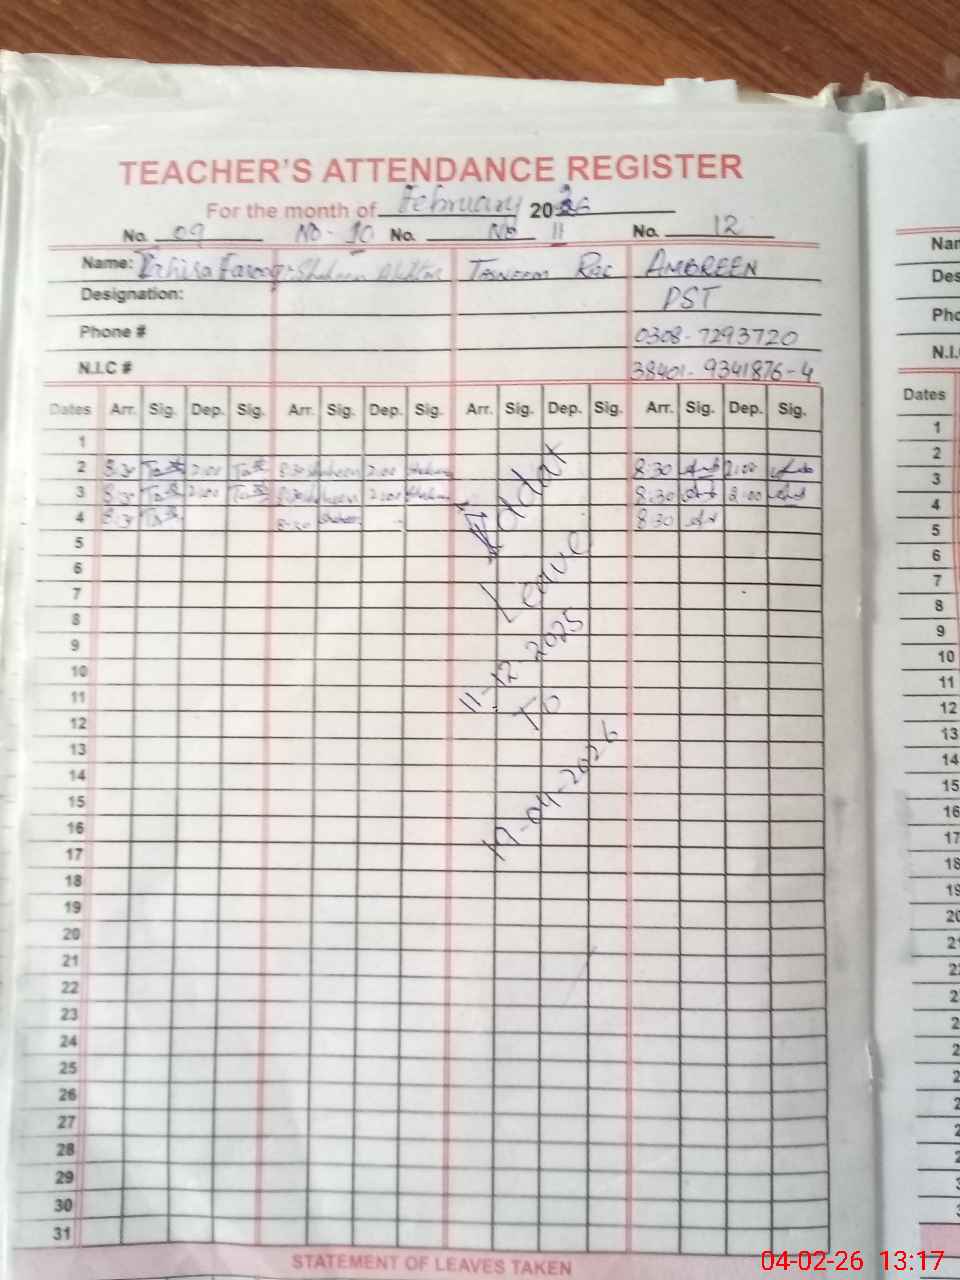 TEACHER'S ATTENDANCE REGISTER
For the month of February 2026
No. 09 No - 10 No. No 11 No. 12
Name: Farooq Shaheen Akhtar Tasneem AMBREEN
Designation: PST
Phone # 0308-7293720
N.I.C # 38401-9341876-4
Dates Arr. Sig. Dep. Sig. Arr. Sig. Dep. Sig. Arr. Sig. Dep. Sig. Arr. Sig. Dep. Sig.
1
2 8:30 2:00 8:30 Shaheen 2:00 Shaheen 8:30 2:00
3 8:30 2:00 8:30 Shaheen 2:00 Shaheen 8:30 2:00
4 8:30 8:30 Shaheen 8:30
5
6
7
8
9
10
11
12
13
14
15
16
17
18
19
20
21
22
23
24
25
26
27
28
29
30
31
Iddat
Leave
11-12-2025
To
19-04-2026
STATEMENT OF LEAVES TAKEN
Dates
1
2
3
4
5
6
7
8
9
10
11
12
13
14
15
16
17
18
04-02-26 13:17